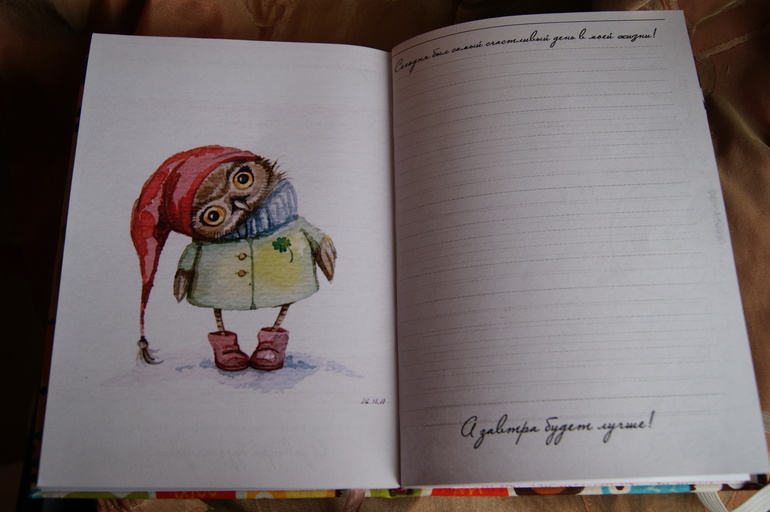 Сегодня был самый счастливый день в моей жизни!
А завтра будет лучше!